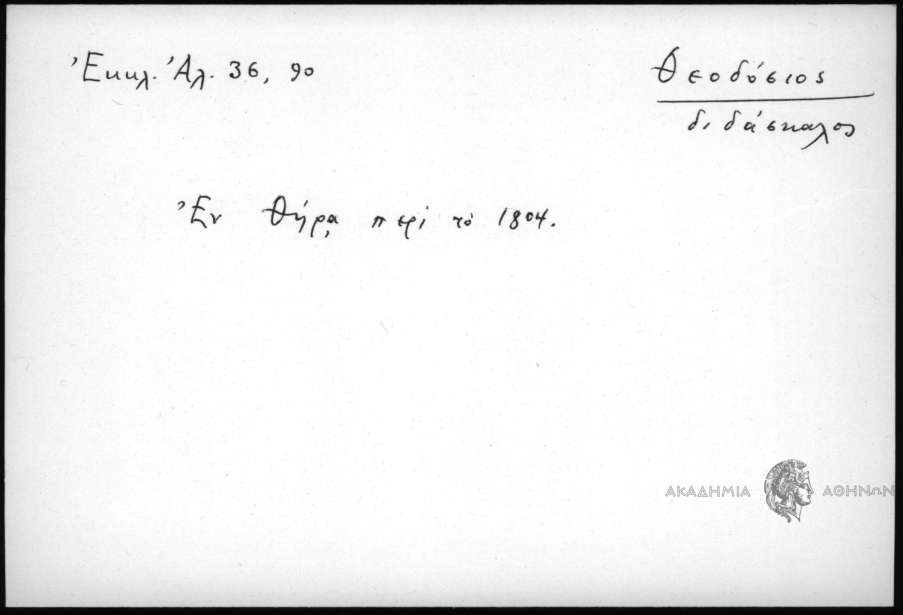 Ἐκκλ. Ἀλ. 36, 90
Θεοδόσιος
διδάσκαλος
Ἐν Θήρᾳ περὶ τὸ 1804.
ΑΚΑΔΗΜΙΑ ΑΘΗΝΩΝ